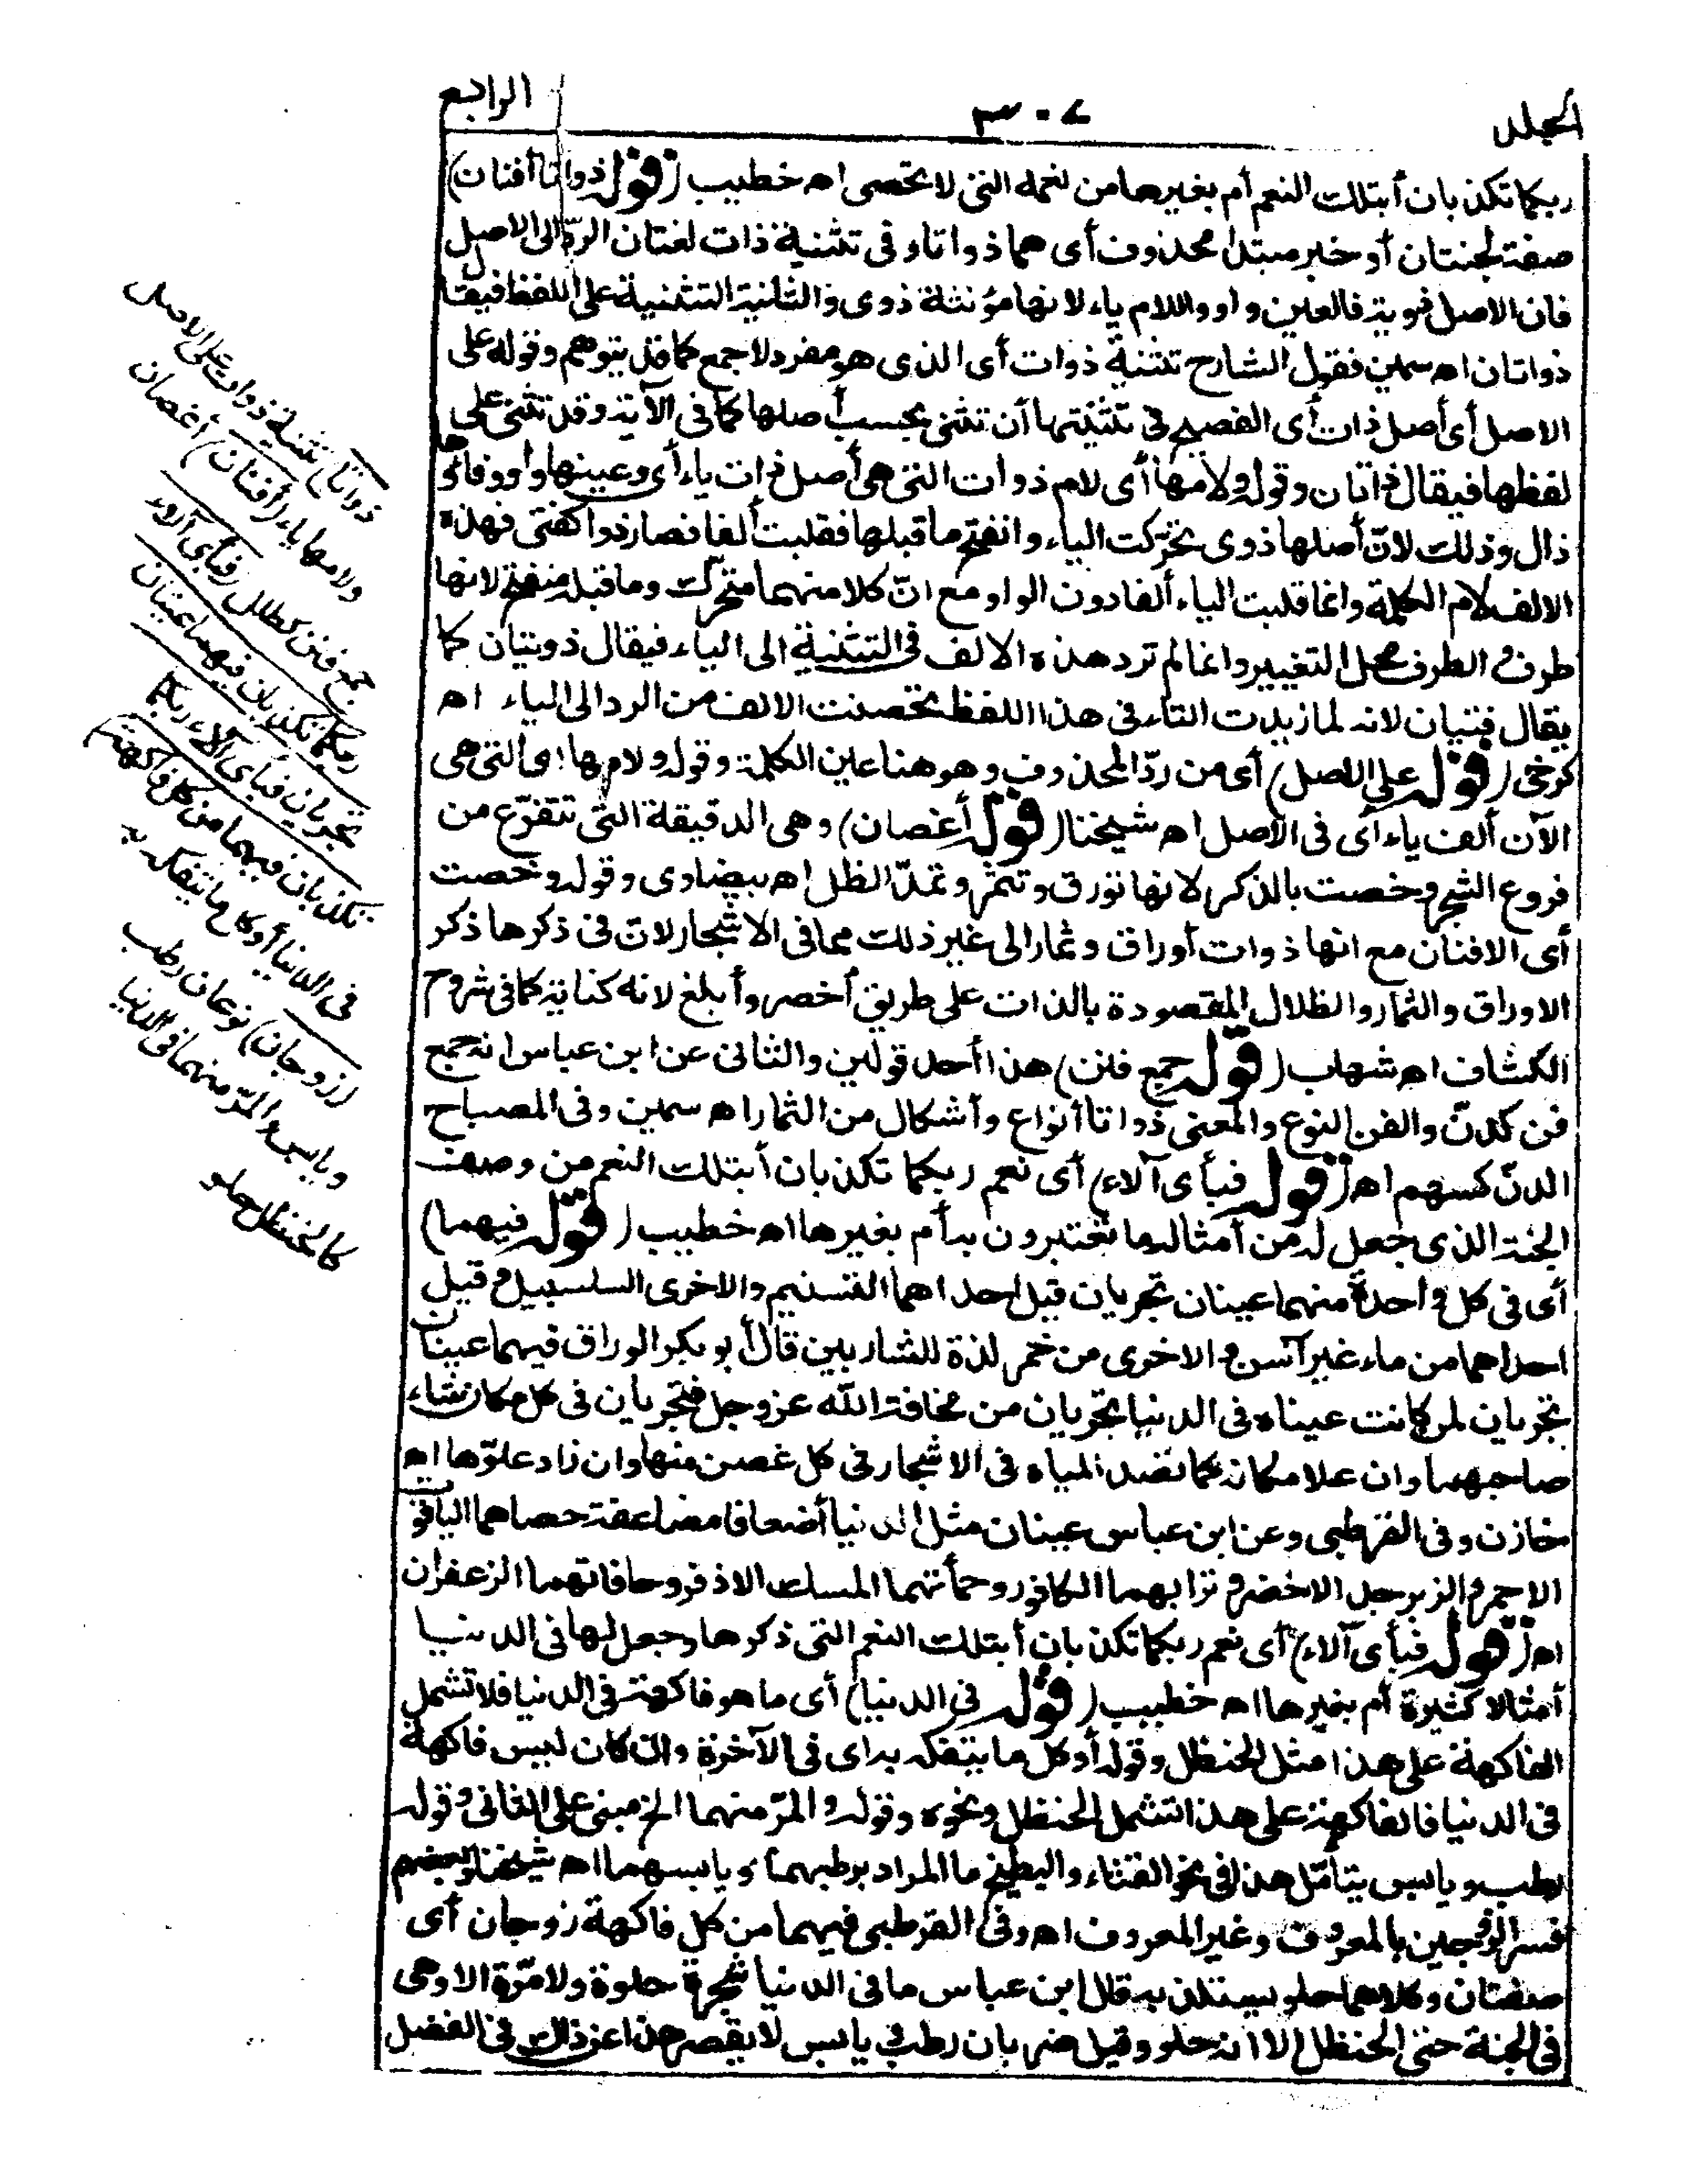 الجلد
٣٠٧
الرابع
ربكما تكذبان أبتلك النعم أم بغيرها من نعمه التي لا تحصى اه خطيب (قوله ذواتا أفنان)
صفة لجنتان أو خبر مبتدا محذوف أى هما ذواتا وفى تثنية ذات لغتان الردّ الى الاصل
فان الاصل ذوية فالعين واو واللام ياء لانها مؤنثة ذوى والثانية التثنية على اللفظ فيقال
ذواتان اه سمين فقول الشارح تثنية ذوات أى الذى هو مفرد لا جمع كما قد يتوهم وقوله على
الاصل أى أصل ذات أى الفصيح فى تثنيتها أن تثنى بحسب أصلها كما فى الآية وقد تثنى على
لفظها فيقال ذاتان وقوله ولامها أى لام ذوات التى هى أصل ذات ياء أى وعينها واو وفاؤها
ذال وذلك لانّ أصلها ذوى تحركت الياء وانفتح ما قبلها فقلبت ألفا فصار ذوا كفتى فهذه
الالف لام الكلمة وانما قلبت الياء ألفا دون الواو مع انّ كلا منهما متحرّك وما قبله منفتح لانها
طرف والطرف محل التغيير وانما لم ترد هذه الالف فى التثنية الى الياء فيقال ذويتان كما
يقال فتيان لانه لما زيدت التاء فى هذا اللفظ تحصنت الالف من الرد الى الياء اه
كرخى (قوله على الاصل) أى من ردّ المحذوف وهو هنا عين الكلمة وقوله ولامها أى التى هى
الآن ألف ياء أى فى الاصل اه شيخنا (قوله أغصان) وهى الدقيقة التى تتفرّع من
فروع الشجر وخصت بالذكر لانها تورق وتثمر وتمدّ الظل اه بيضاوى وقوله وخصت
أى الافنان مع انها ذوات أوراق وثمار الى غير ذلك مما فى الاشجار لانّ فى ذكرها ذكر
الاوراق والثمار والظلال المقصودة بالذات على طريق أخصر وأبلغ لانه كناية كما فى شروح
الكشاف اه شهاب (قوله جمع فنن) هذا أحد قولين والثانى عن ابن عباس انه جمع
فن كدنّ والفن النوع والمعنى ذواتا أنواع وأشكال من الثمار اه سمين وفى المصباح
الدنّ كسهم اه (قوله فبأى آلاء) أى نعم ربكما تكذبان أبتلك النعم من وصف
الجنة الذى جعل له من أمثاله ما تعتبرون به أم بغيرها اه خطيب (قوله فيهما)
أى فى كل واحدة منهما عينان تجريان قيل احداهما التسنيم والاخرى السلسبيل وقيل
احداهما من ماء غير آسن والاخرى من خمر لذة للشاربين قال أبو بكر الوراق فيهما عينان
تجريان لمن كانت عيناه فى الدنيا تجريان من مخافة الله عز وجل فتجريان فى كل مكان شاء
صاحبهما وان علا مكانه كما تصعد المياه فى الاشجار فى كل غصن منها وان زاد علوّها اه
خازن وفى القرطبى وعن ابن عباس عينان مثل الدنيا أضعافا مضاعفة حصاهما الياقوت
الاحمر والزبرجد الاخضر وترابهما الكافور وحمأتهما المسك الاذفر وحافاتهما الزعفران
اه (قوله فبأى آلاء) أى نعم ربكما تكذبان أبتلك النعم التى ذكرها وجعل لها فى الدنيا
أمثالا كثيرة أم بغيرها اه خطيب (قوله فى الدنيا) أى ما هو فاكهة فى الدنيا فلا تشمل
الفاكهة على هذا مثل الحنظل وقوله أو كل ما يتفكه به اى فى الآخرة وان كان ليس فاكهة
فى الدنيا فالفاكهة على هذا تشمل الحنظل ونحوه وقوله والمرّ منهما الخ مبنى على الثانى وقوله
رطب ويابس يتأمّل هذا فى نحو القثاء والبطيخ ما المراد برطبهما ويابسهما اه شيخنا وبعضهم
فسر الزوجين بالمعروف وغير المعروف اه وفى القرطبى فيهما من كل فاكهة زوجان أى
صنفان وكلاهما حلو يستلذ به قال ابن عباس ما فى الدنيا شجرة حلوة ولا مرّة الا وهى
فى الجنة حتى الحنظل الا انه حلو وقيل ضربان رطب ويابس لا يقصر هذا عن ذلك فى الفضل
ذواتا) تثنية ذوات على الاصل
ولامها ياء (أفنان) أغصان
جمع فنن كطلل (فبأى آلاء
ربكما تكذبان فيهما عينان
تجريان فبأى آلاء ربكما
تكذبان فيهما من كل فاكهة)
فى الدنيا أو كل ما يتفكه به
(زوجان) نوعان رطب
ويابس والمرّ منهما فى الدنيا
كالحنظل حلو